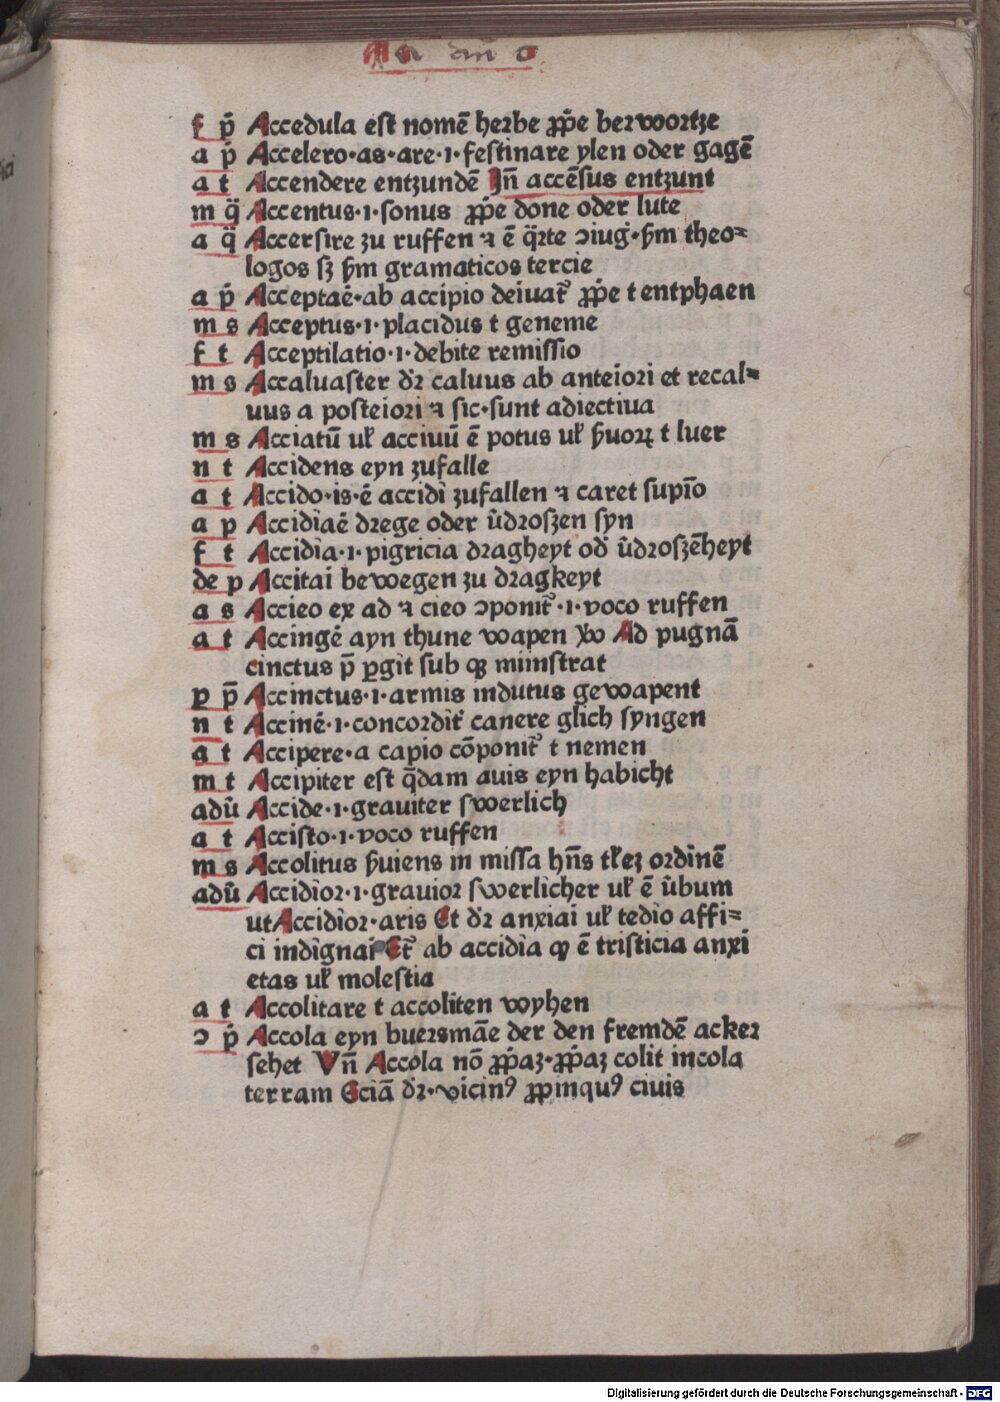 f p̄ Accedula est nomē herbe ꝓp̄e berwoortze
a p̄ Accelero·as·are·i·festinare ylen oder gagē
a t Accendere entzundē Jn̄ accēsus entzunt
m q̄ Accentus·i·sonus ꝓp̄e done oder lute
a q̄ Accersire zu ruffen ⁊ ē q̄rte ↄiuḡ·ẜm theo⸗
logos sꝫ ẜm gramaticos tercie
a p̄ Acceptaē·ab accipio deiuat̄ ꝓp̄e t entphaen
m s Acceptus·i·placidus t geneme
f t Acceptilatio·i·debite remissio
m s Accaluaster dr̄ caluus ab anteiori et recal⸗
uus a posteiori ⁊ sic·sunt adiectiua
m s Acciatū ul̄ acciuū ē potus ul̄ ẜuorꝝ t luer
n t Accidens eyn zufalle
a t Accido·is·ē accidi zufallen ⁊ caret supīo
a p Accidiaē drege oder v̄droszen syn
f t Accidia·i·pigricia dragheyt od̄ v̄droszēheyt
de p Accitai bewegen zu dragkeyt
a s Accieo ex ad ⁊ cieo ↄponit̄·i·voco ruffen
a t Accingē ayn thune wapen Ad pugnā
cinctus p̄ ꝑgit sub qꝫ mimstrat
p p̄ Accinctus·i·armis indutus gewapent
n t Accinē·i·concordit̄ canere glich syngen
a t Accipere·a capio cōponit̄ t nemen
m t Accipiter est q̄dam auis eyn habicht
adū Accide·i·grauiter swerlich
a t Accisto·i·voco ruffen
m s Accolitus ẜuiens in missa hn̄s tl̄eꝫ ordinē
adū Accidior·i·grauior swerlicher ul̄ ē v̄bum
ut Accidior·aris Et dr̄ anxiai ul̄ tedio affi⸗
ci indignai Et̄ ab accidia ꝙ ē tristicia anxi
etas ul̄ molestia
a t Accolitare t accoliten wyhen
ↄ p̄ Accola eyn buersmāe der den fremdē acker
sehet Vn̄ Accola nō ꝓp̄aꝫ·ꝓp̄aꝫ colit incola
terram Eciā dr̄·vicinꝰ ꝓpinquꝰ ciuis
Digitalisierung gefördert durch die Deutsche Forschungsgemeinschaft - DFG